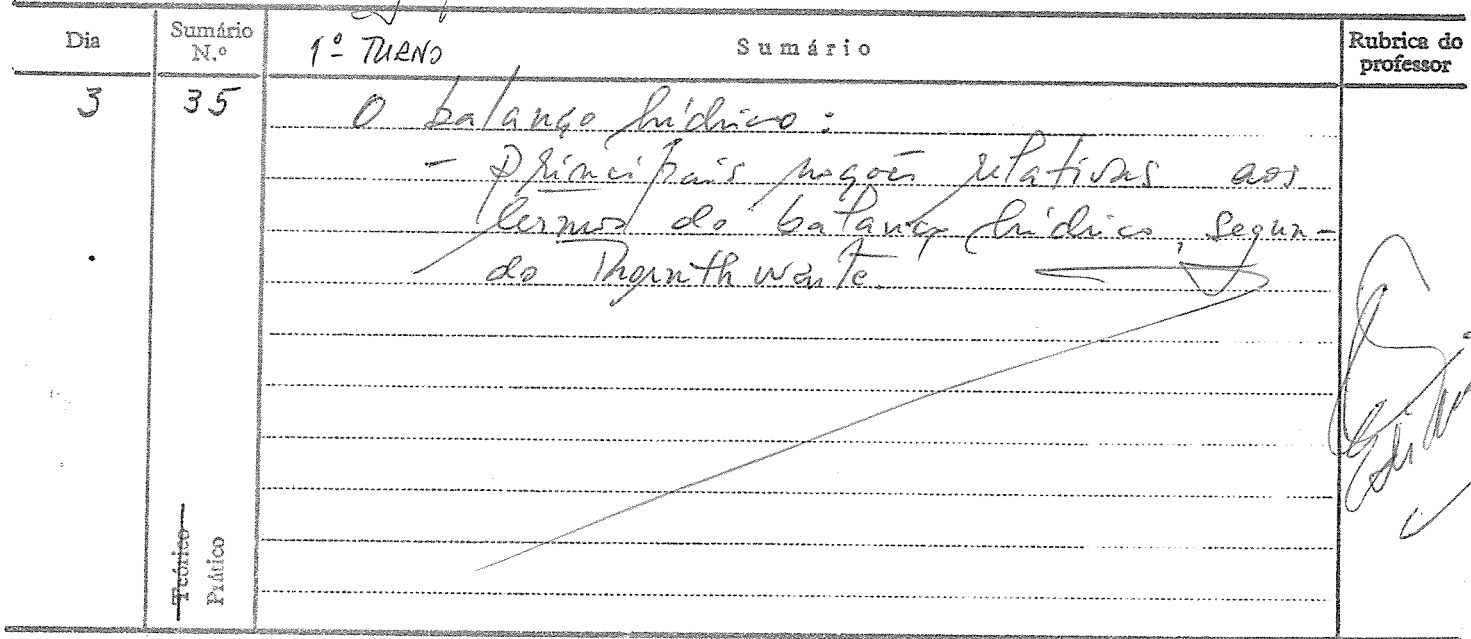 Dia
Sumário N.º
1º TURNO
Sumário
Rubrica do professor
3
35
O balanço hídrico:
- Principais noções relativas aos
termos do balanço hídrico, segun-
do Thornthwaite.
Teórico
Prático